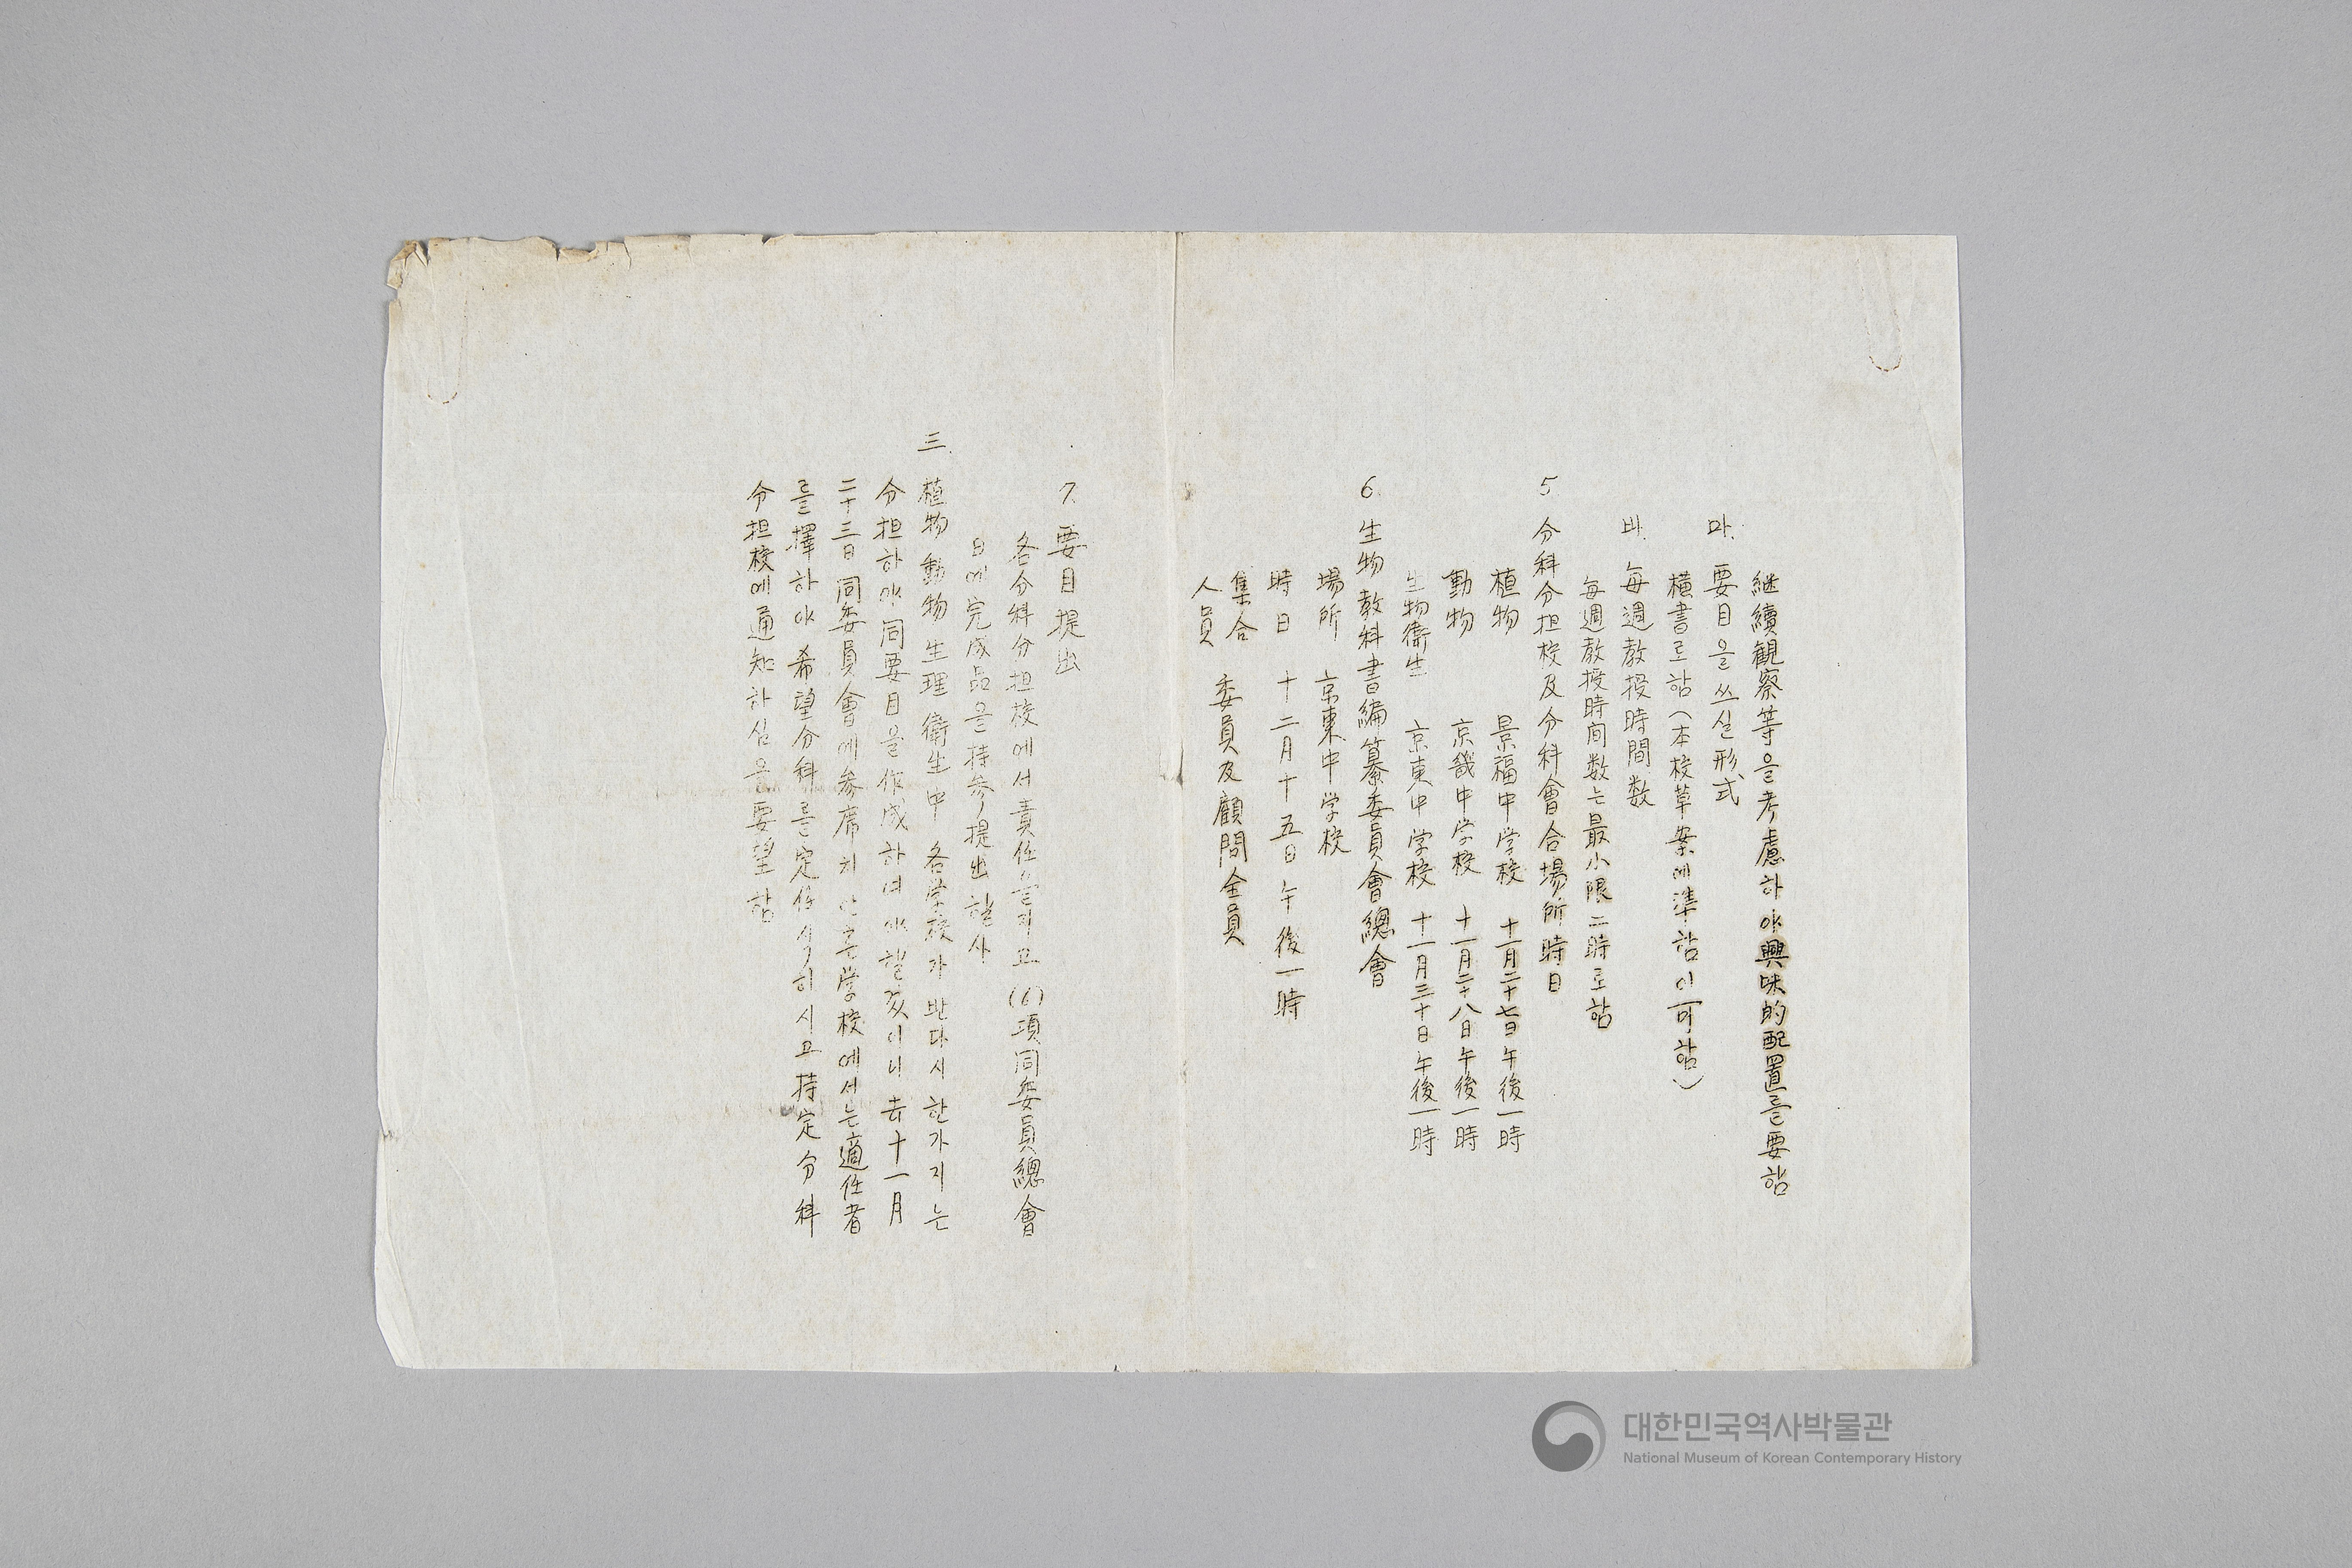 継續観察等을考慮하야興味的配置를要함
마. 要目을쓰실形式
横書로함(本校草案에準함이可함)
바. 每週教授時間数
每週教授時间数는最小限二時로함
5 分科分担校及分科會合場所時日
植物 景福中学校 十一月二十七日午後一時
動物 京畿中学校 十一月二十八日午後一時
生物衛生 京東中学校 十一月三十日午後一時
6. 生物教科書編纂委員會總會
場所 京東中学校
時日 十二月十五日午後一時
集合人員 委員及顧問全員
7. 要目提出
各分科分担校에서責任을지고(6)項同委員總會
日에完成品을持参提出할사
三. 植物 動物 生理衛生中 各学校가반다시한가지는
分担하야同要目을作成하여야할것이니去十一月
二十三日同委員會에参席치안흔学校에서는適任者
를擇하야希望分科를定하시고持定分科
分担校에通知하심을要望함
대한민국역사박물관
National Museum of Korean Contemporary History